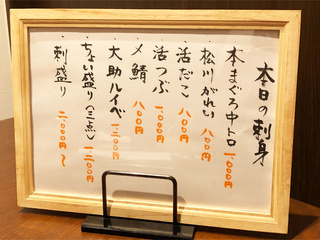 本日の刺身
・本まぐろ中トロ 一、〇〇〇円
・松川がれい 八〇〇円
・活だこ 八〇〇円
・活つぶ 八〇〇円
・〆鯖 八〇〇円
・大助ルイベ 一、二〇〇円
・ちょい盛り(三点) 一、二〇〇円
・刺盛り 二、〇〇〇円〜